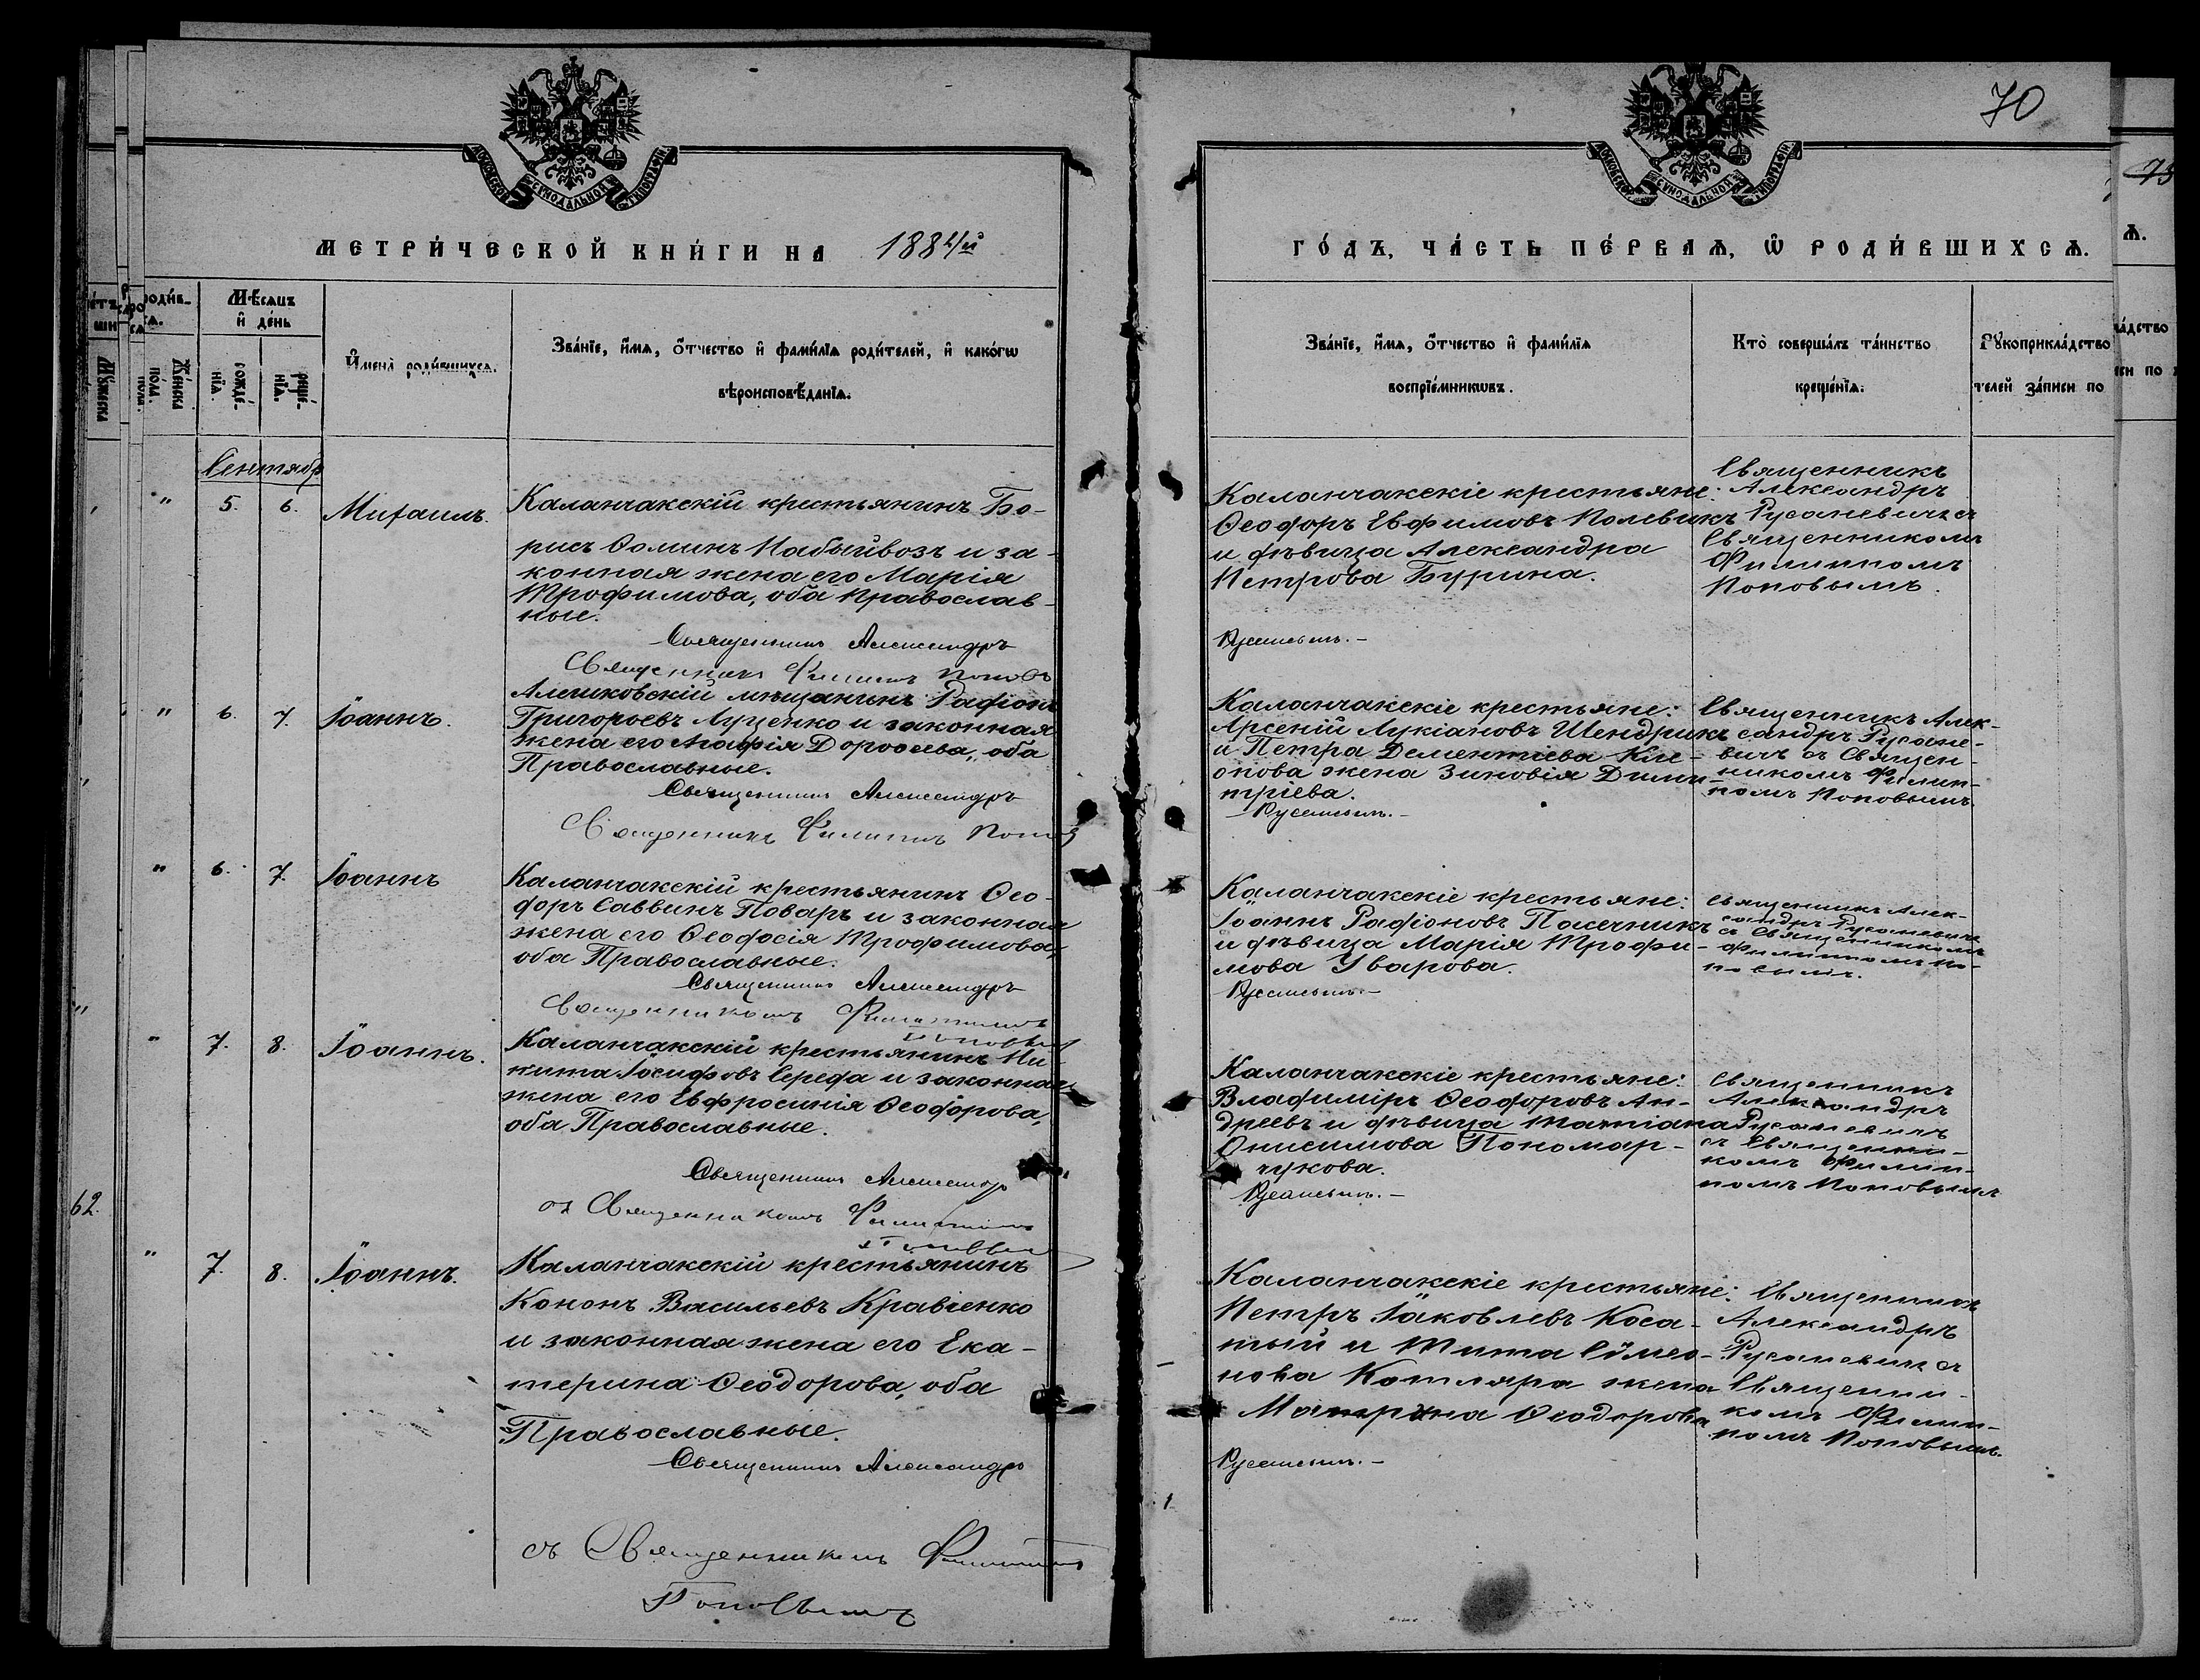 70
МОСКОВСКОЙ СѴНОДАЛЬНОЙ ТИПОГРАФІИ
МОСКОВСКОЙ СѴНОДАЛЬНОЙ ТИПОГРАФІИ
МЕТРИ́ЧЕСКОЙ КНИ́ГИ НА 1884/й
ГО́ДЪ, ЧА́СТЬ ПЕ́РВАѦ, Ѡ РОДИ́ВШИХСѦ.
Мѣ́сѧцъ
и҆ де́нь
Же́нска
по́ла.
рожде́-
нїѧ.
креще́-
нїѧ.
И҆мена̀ роди́вшихсѧ.
Зва́нїе, и҆́мѧ, ѻ҆́тчество и҆ фами́лїѧ роди́телей, и҆ како́гѡ
вѣроисповѣ́данїѧ.
Зва́нїе, и҆́мѧ, ѻ҆́тчество и҆ фами́лїѧ
воспрїе́мникѡвъ.
Кто̀ соверша́лъ та́инство
креще́нїѧ.
Рꙋкоприкла́дство
телей за́писи по
Сентябр
" 5. 6. Михаилъ.
Каланчакскій крестьянинъ Бо-
рисъ Ѳоминъ Набыйвозъ и за-
конная жена его Марія
Трофимова, оба православ-
ные.
Священникъ Александръ
Священникъ Филиппъ Поповъ
Каланчакскіе крестьяне:
Ѳеодоръ Евфимовъ Полевикъ
и дѣвица Александра
Петрова Бурина.
Русаневичъ.-
Священникъ
Александръ
Русаневичъ съ
Священникомъ
Филиппомъ
Поповымъ.
" 6. 7. Іоаннъ.
Алешковскій мѣщанинъ Радіонъ
Григорьевъ Луценко и законная
жена его Агафія Дороѳеева, оба
Православные.
Священникъ Александръ
Священникъ Филиппъ Поповъ
Каланчакскіе крестьяне:
Арсеній Лукіановъ Шендрикъ
и Петра Дементіева Кле-
опова жена Зиновія Дими-
тріева.
Русаневичъ.-
Священникъ Алек-
сандръ Русане-
вичъ съ Священ-
никомъ Филип-
помъ Поповымъ.
" 6. 7. Іоаннъ
Каланчакскій крестьянинъ Ѳео-
доръ Саввинъ Поваръ и законная
жена его Ѳеодосія Трофимова,
оба Православные.
Священникъ Александръ
Священникомъ Филиппомъ
Поповым
Каланчакскіе крестьяне:
Іоаннъ Радіоновъ Пасечникъ
и дѣвица Марія Трофи-
мова Уварова.
Русаневичъ.-
Священникъ Алек-
сандръ Русаневичъ
съ Священникомъ
Филиппомъ По-
повымъ.
" 7. 8. Іоаннъ.
Каланчакскій крестьянинъ Ни-
кита Іосифовъ Середа и законная
жена его Евфросинія Ѳеодорова,
оба Православные.
Священникъ Александр
съ Священникомъ Филиппомъ
Поповым
Каланчакскіе крестьяне:
Владиміръ Ѳеодоровъ Ан-
дреевъ и дѣвица Татіана
Онисимова Пономар-
чукова.
Русаневичъ.-
Священникъ
Александръ
Русаневичъ
съ Священни-
комъ Филип-
помъ Поповымъ
62.
" 7. 8. Іоаннъ.
Каланчакскій крестьянинъ
Кононъ Васильевъ Кравіенко
и законная жена его Ека-
терина Ѳеодорова, оба
Православные.
Священникъ Александръ
съ Священникомъ Филиппомъ
Поповымъ
Каланчакскіе крестьяне:
Петръ Іаковлевъ Коса-
тый и Тита Сімео-
нова Котляра жена
Матрона Ѳеодорова
Русаневичъ.-
Священникъ
Александръ
Русаневичъ съ
Священни-
комъ Филип-
помъ Поповымъ.